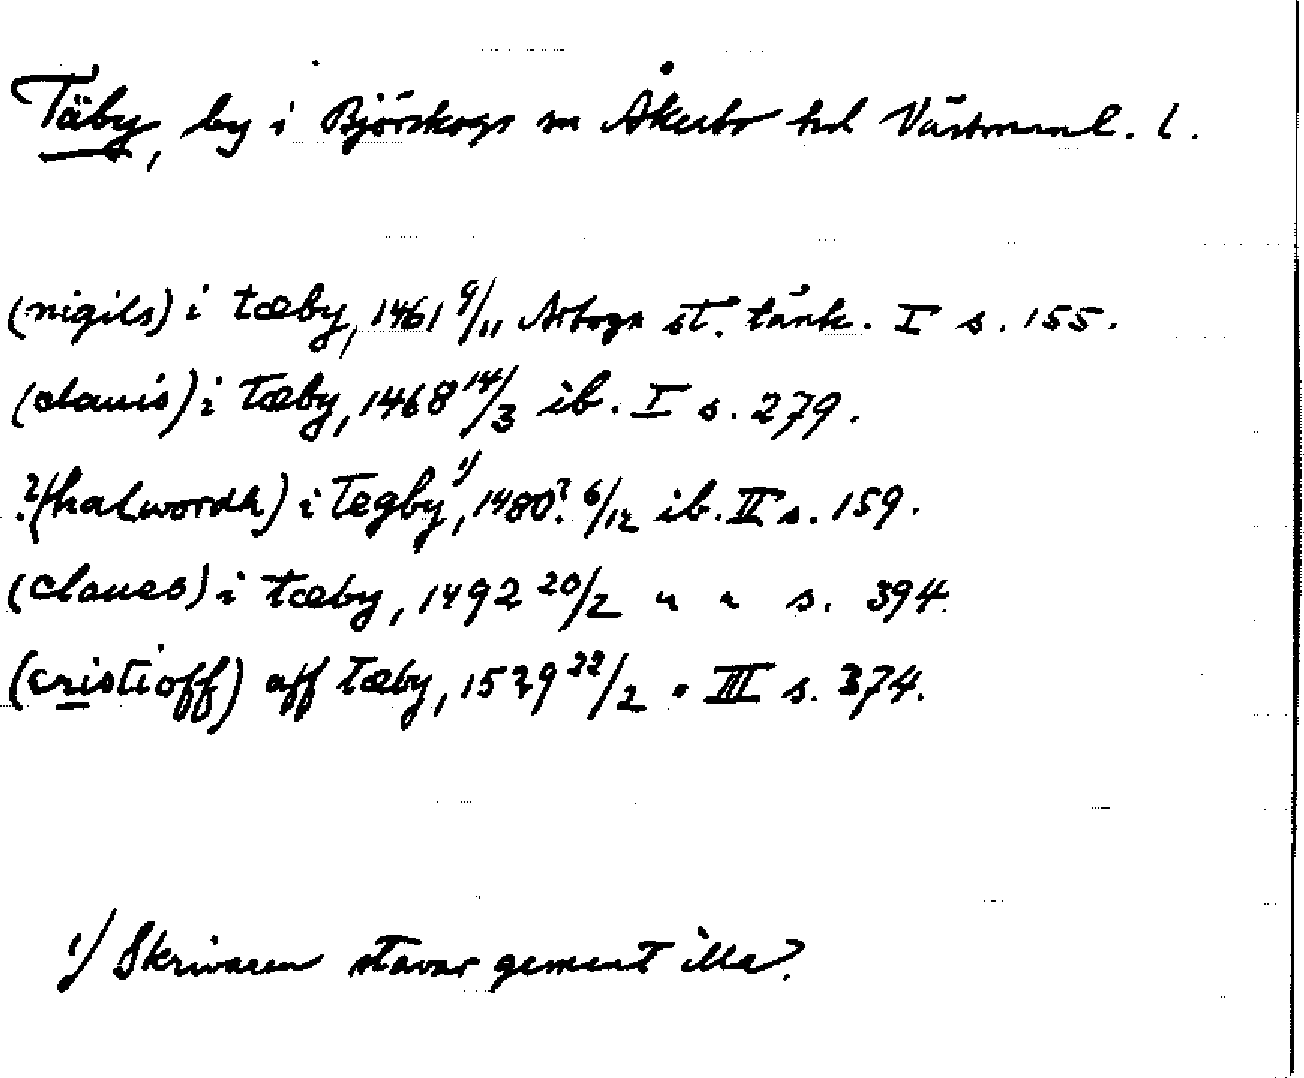 Täby, by i Björskogs sn Åkerbo hd Västmanl. l.
(nigils) i tæby, 1461 9/11 Arboga st. tänk. I s. 155.
(clauis) i Tæby, 1468 14/3 ib. I s. 279.
?/(halwordh) i Tegby 1), 1480? 6/12 ib. II s. 159.
(claues) i tæby, 1492 20/2 " " s. 394.
(cristioff) aff tæby, 1529 22/2 " III s. 374.
1) Skrivaren stavar gement illa?